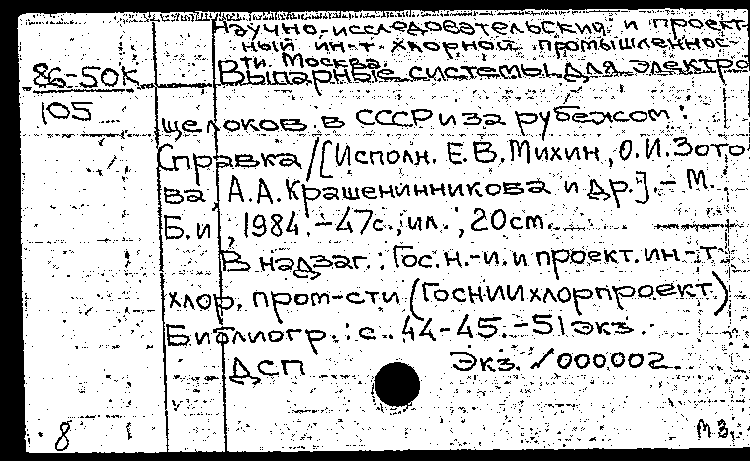 Научно-исследовательский и проект
ный ин-т хлорной промышленнос
ти. Москва.
86-50К Выпарные системы для электро
105
щелоков в СССР и за рубежом :
Справка / [Исполн. Е.В. Михин, О.И. Зото
ва, А.А. Крашенинникова и др.]. - М.
Б.и., 1984. - 47с., ил.; 20 cm.
В надзаг.: Гос. н.-и. и проект. ин-т
хлор. пром-сти (Госниихлорпроект)
Библиогр.: с. 44-45. - 51 экз.
ДСП Экз. √000002.
8 М 3.